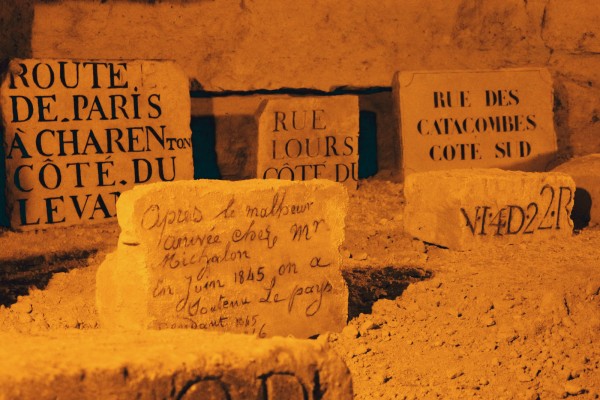 ROUTE.
DE.PARIS
À CHARENTON
CÔTÉ.DU
LEVA
RUE
LOURS
CÔTE DU
RUE DES
CATACOMBES
COTE SUD
Apres le malheur
arrivée chez Mr
Michalon
en Juin 1845 on a
soutenu le pays
pendant 1845
VI4D22.R